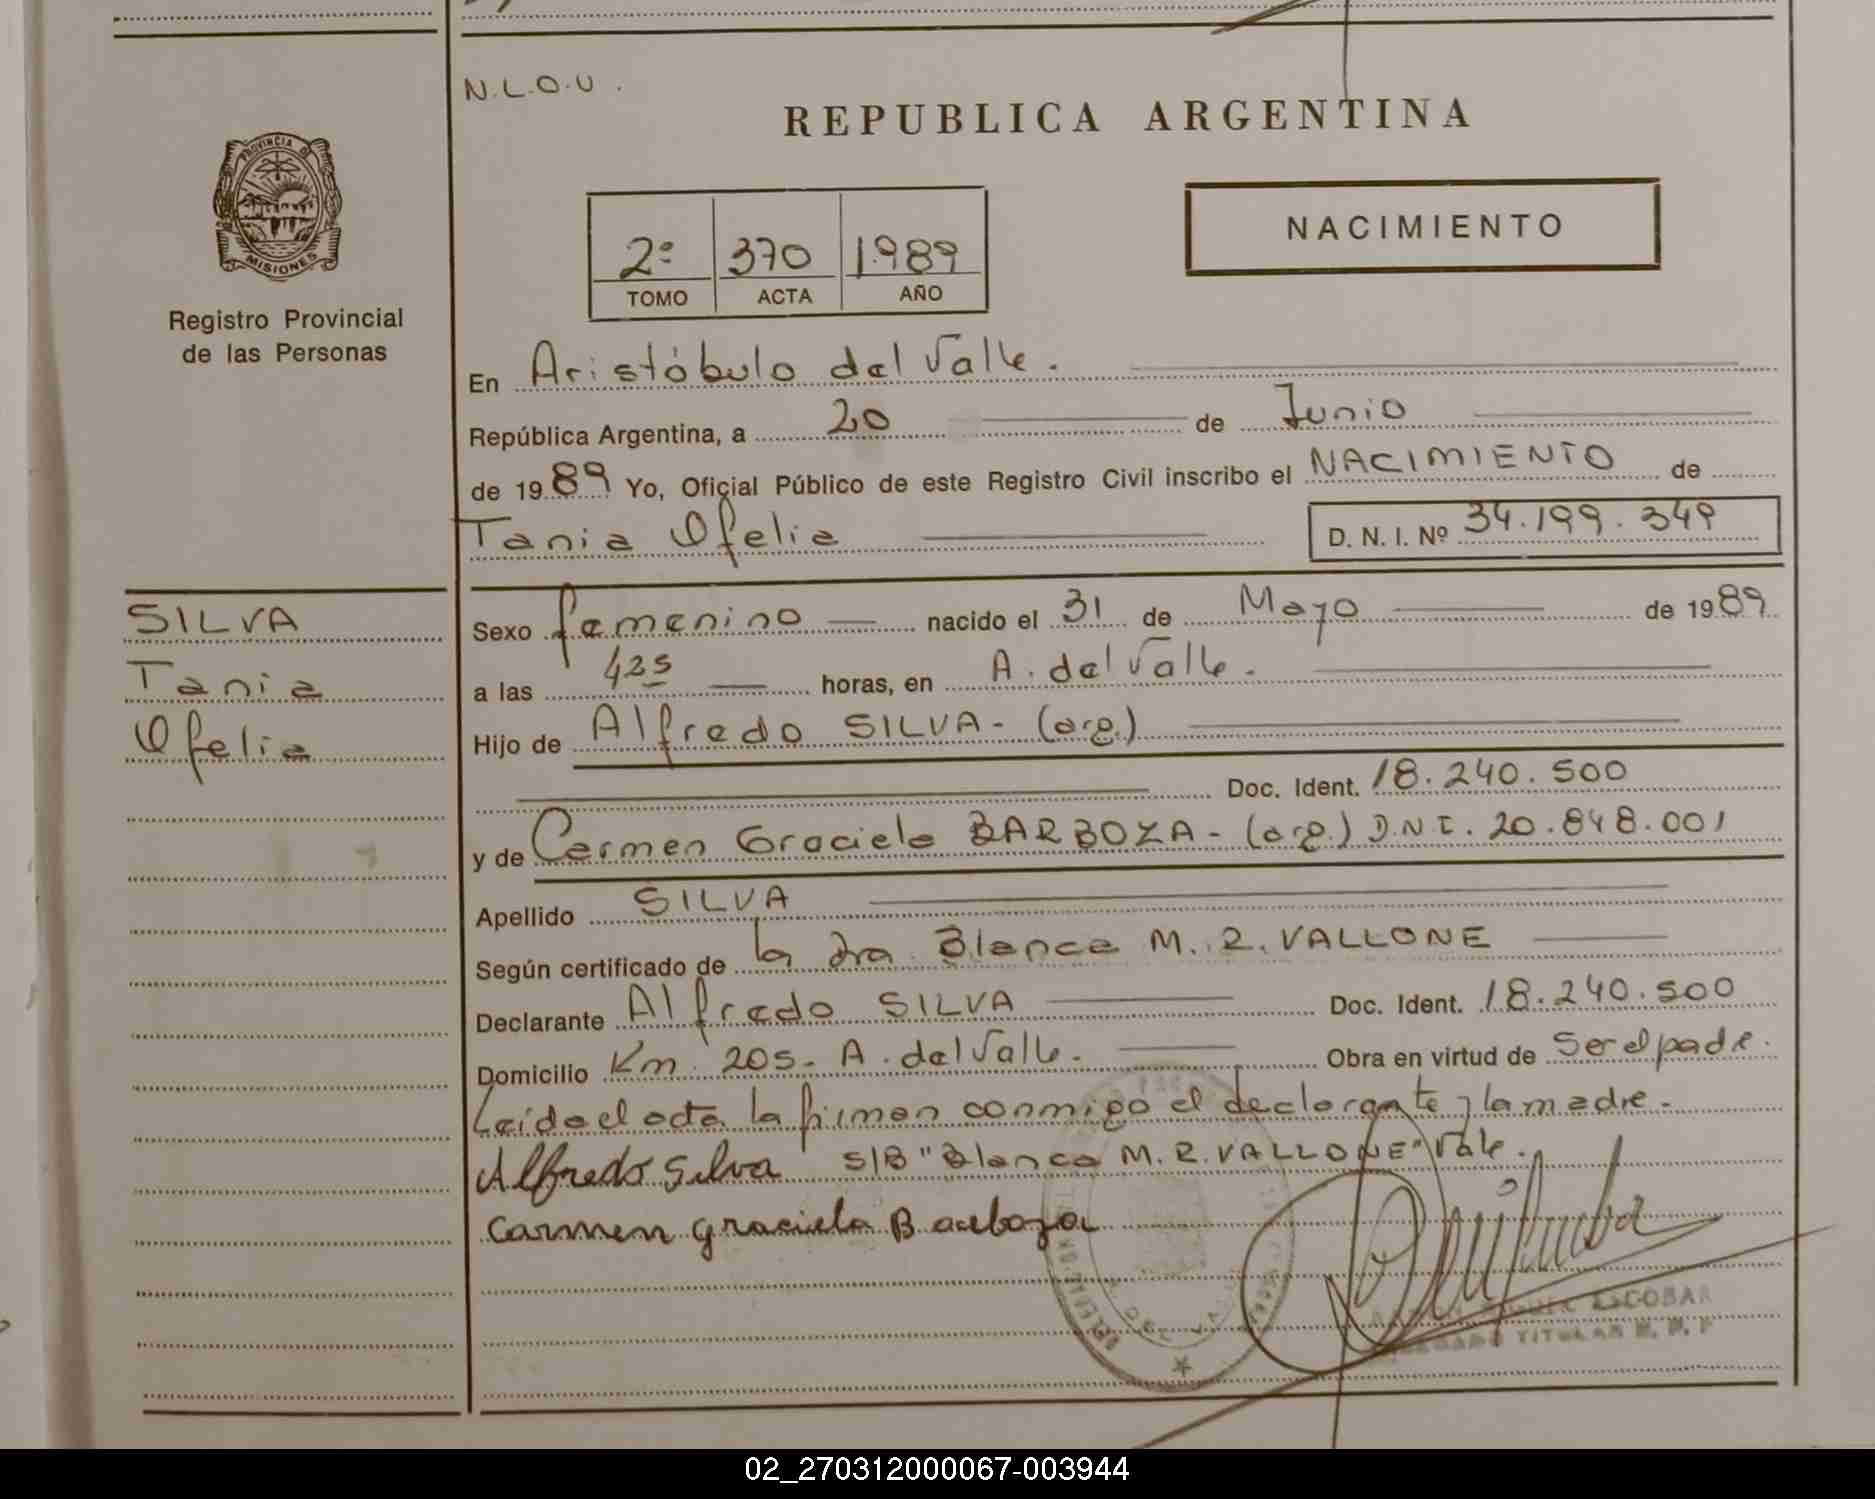 N.L.O.U.
REPUBLICA ARGENTINA
PROVINCIA DE
MISIONES
Registro Provincial
de las Personas
2º 370 1989
TOMO ACTA AÑO
NACIMIENTO
En Aristóbulo del Valle.
República Argentina, a 20 de Junio
de 1989 Yo, Oficial Público de este Registro Civil inscribo el NACIMIENTO de
Tania Ofelia D. N. I. Nº 34.199.349
SILVA
Tania
Ofelia
Sexo femenino nacido el 31 de Mayo de 1989
a las 425 horas, en A. del Valle.
Hijo de Alfredo SILVA - (arg.)
Doc. Ident. 18.240.500
y de Carmen Graciela BARBOZA - (arg.) D.N.I. 20.848.001
Apellido SILVA
Según certificado de la dra Blanca M. R. VALLONE
Declarante Alfredo SILVA Doc. Ident. 18.240.500
Domicilio Km. 205 - A. del Valle. Obra en virtud de Ser el padre.
Leída el acta la firman conmigo el declarante y la madre.
Alfredo Silva S/B "Blanca M. R. VALLONE" Vale.
Carmen Graciela Barboza
ESCOBAR
TITULAR R. P. P
02_270312000067-003944